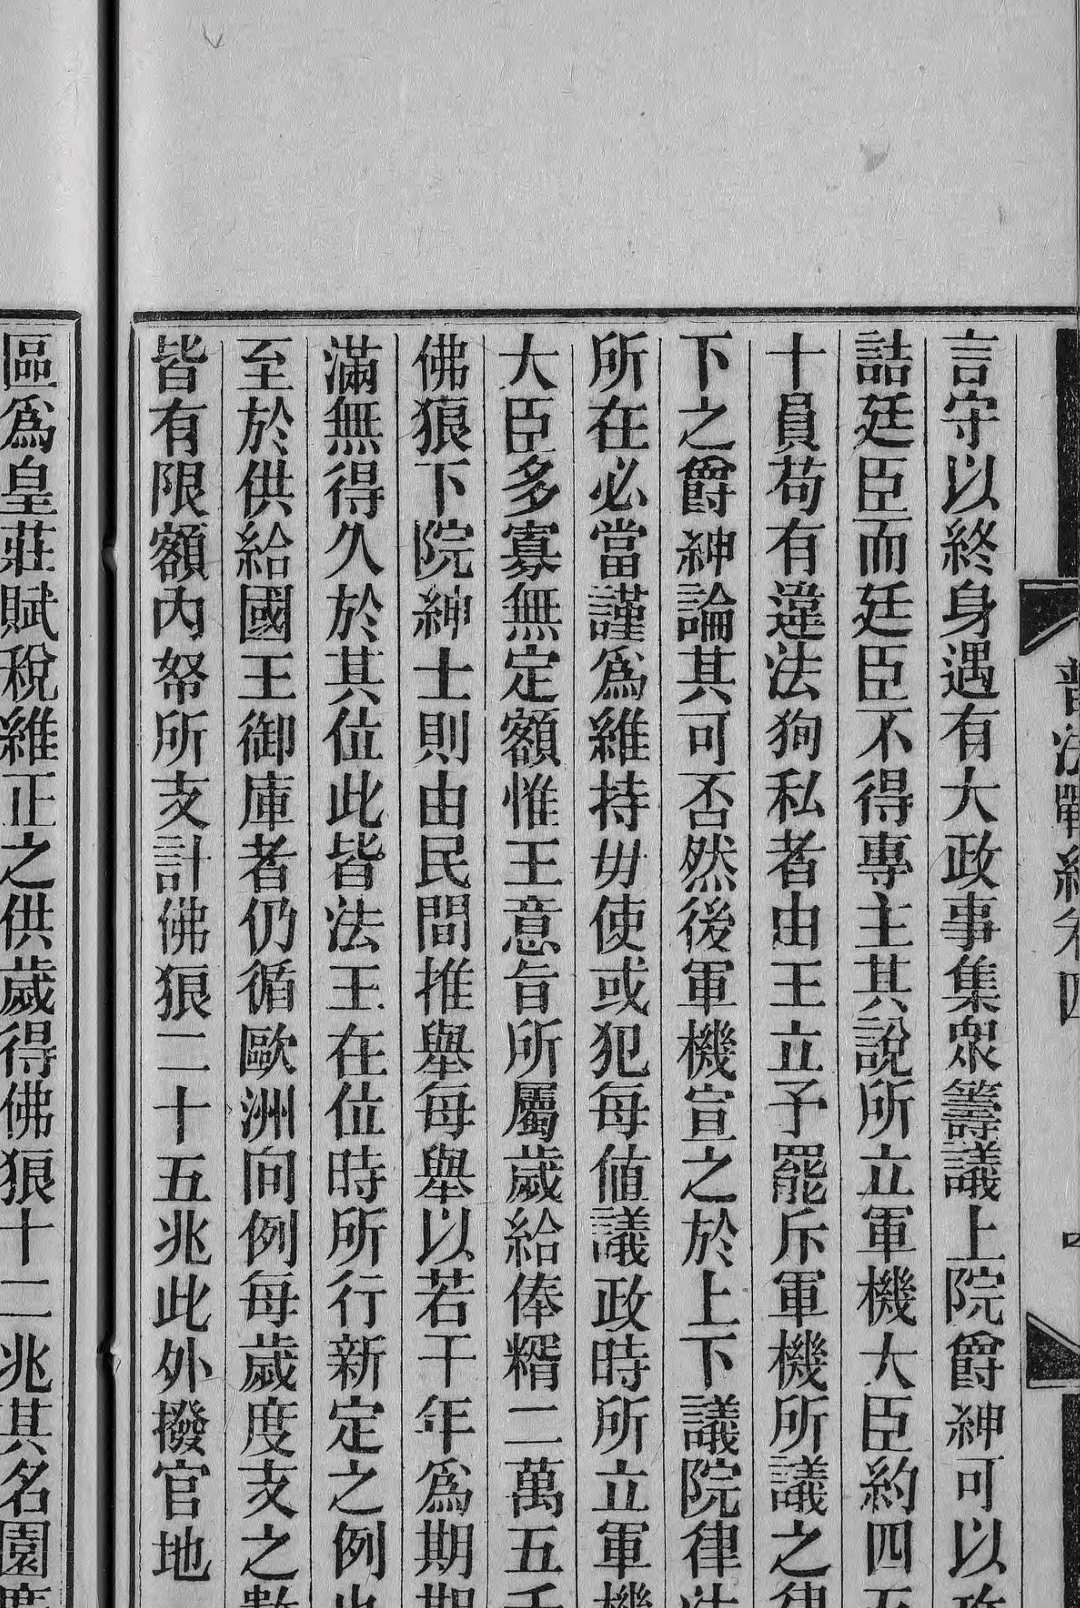 普法戰紀卷四
言守以終身遇有大政事集眾籌議上院爵紳可以
詰廷臣而廷臣不得專主其說所立軍機大臣約四五
十員苟有違法狥私者由王立予罷斥軍機所議之律
下之爵紳論其可否然後軍機宣之於上下議院律法
所在必當謹為維持毋使或犯每值議政時所立軍機
大臣多寡無定額惟王意旨所屬歲給俸糈二萬五千
佛狼下院紳士則由民間推舉每舉以若干年為期期
滿無得久於其位此皆法王在位時所行新定之例也
至於供給國王御庫者仍循歐洲向例每歲度支之數
皆有限額內帑所支計佛狼二十五兆此外撥官地
區為皇莊賦稅維正之供歲得佛狼十二兆其名園